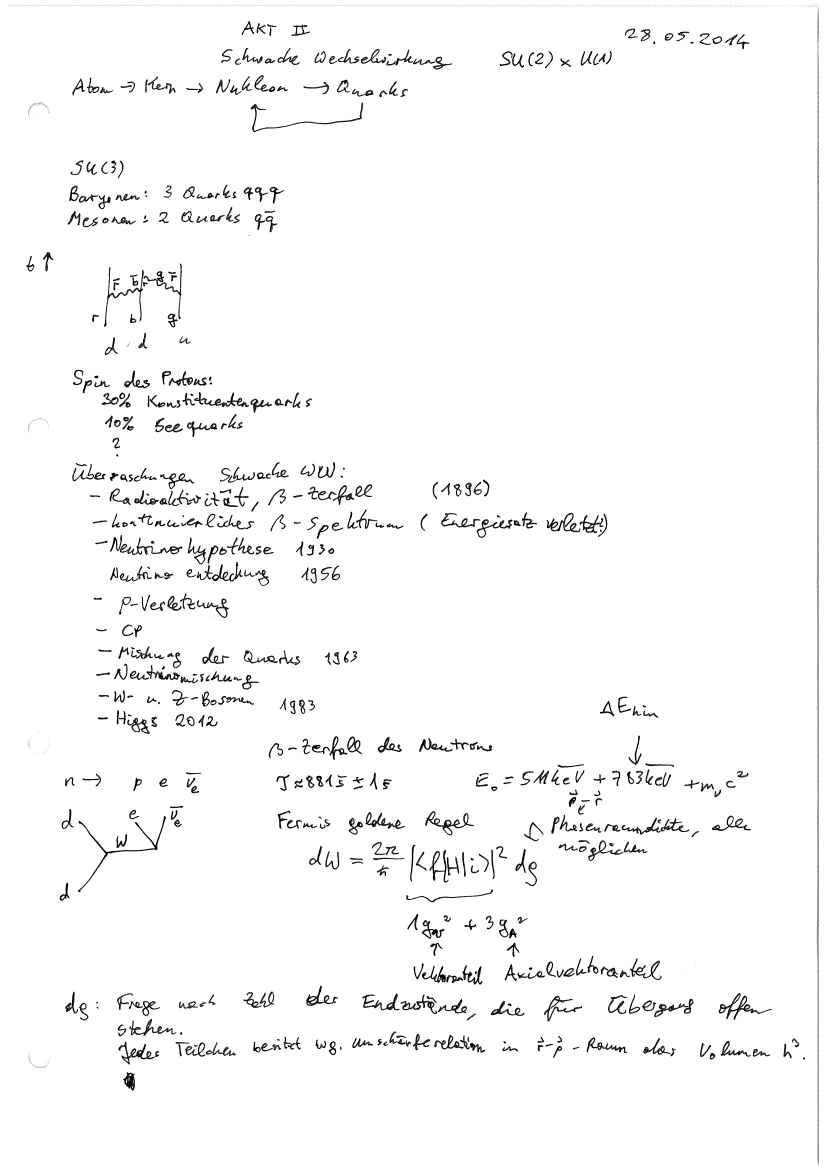 AKT II
28.05.2014
Schwache Wechselwirkung SU(2) x U(1)
Atom → Kern → Nukleon → Quarks
SU(3)
Baryonen: 3 Quarks qqq
Mesonen: 2 Quarks qq̅
t ↑
r̅ b̅ g̅ r̅
r b g
d d u
Spin des Protons:
30% Konstituentenquarks
10% Seequarks
?
Überraschungen Schwache WW:
- Radioaktivität, β-Zerfall (1896)
- kontinuierliches β-Spektrum (Energiesatz verletzt!)
- Neutrinohypothese 1930
Neutrino entdeckung 1956
- P-Verletzung
- CP
- Mischung der Quarks 1963
- Neutrinomischung
- W- u. Z-Bosonen 1983
- Higgs 2012
ΔE kin
β-Zerfall des Neutrons
n → p e ν̅e
τ ≈ 881s ± 1s
E₀ = 511keV + 783keV + mᵥc²
p⃗ - r⃗
d e ν̅e
W
d
Fermis goldene Regel
Phasenraumdichte, alle
möglichen
dW = 2π/ħ |<f|H|i>|² dϱ
1gᵥ² + 3g_A²
↑ ↑
Vektoranteil Axialvektoranteil
dϱ: Frage nach Zahl der Endzustände, die für Übergang offen
stehen.
Jedes Teilchen besitzt wg. Unschärferelation in r⃗-p⃗-Raum das Volumen h³.